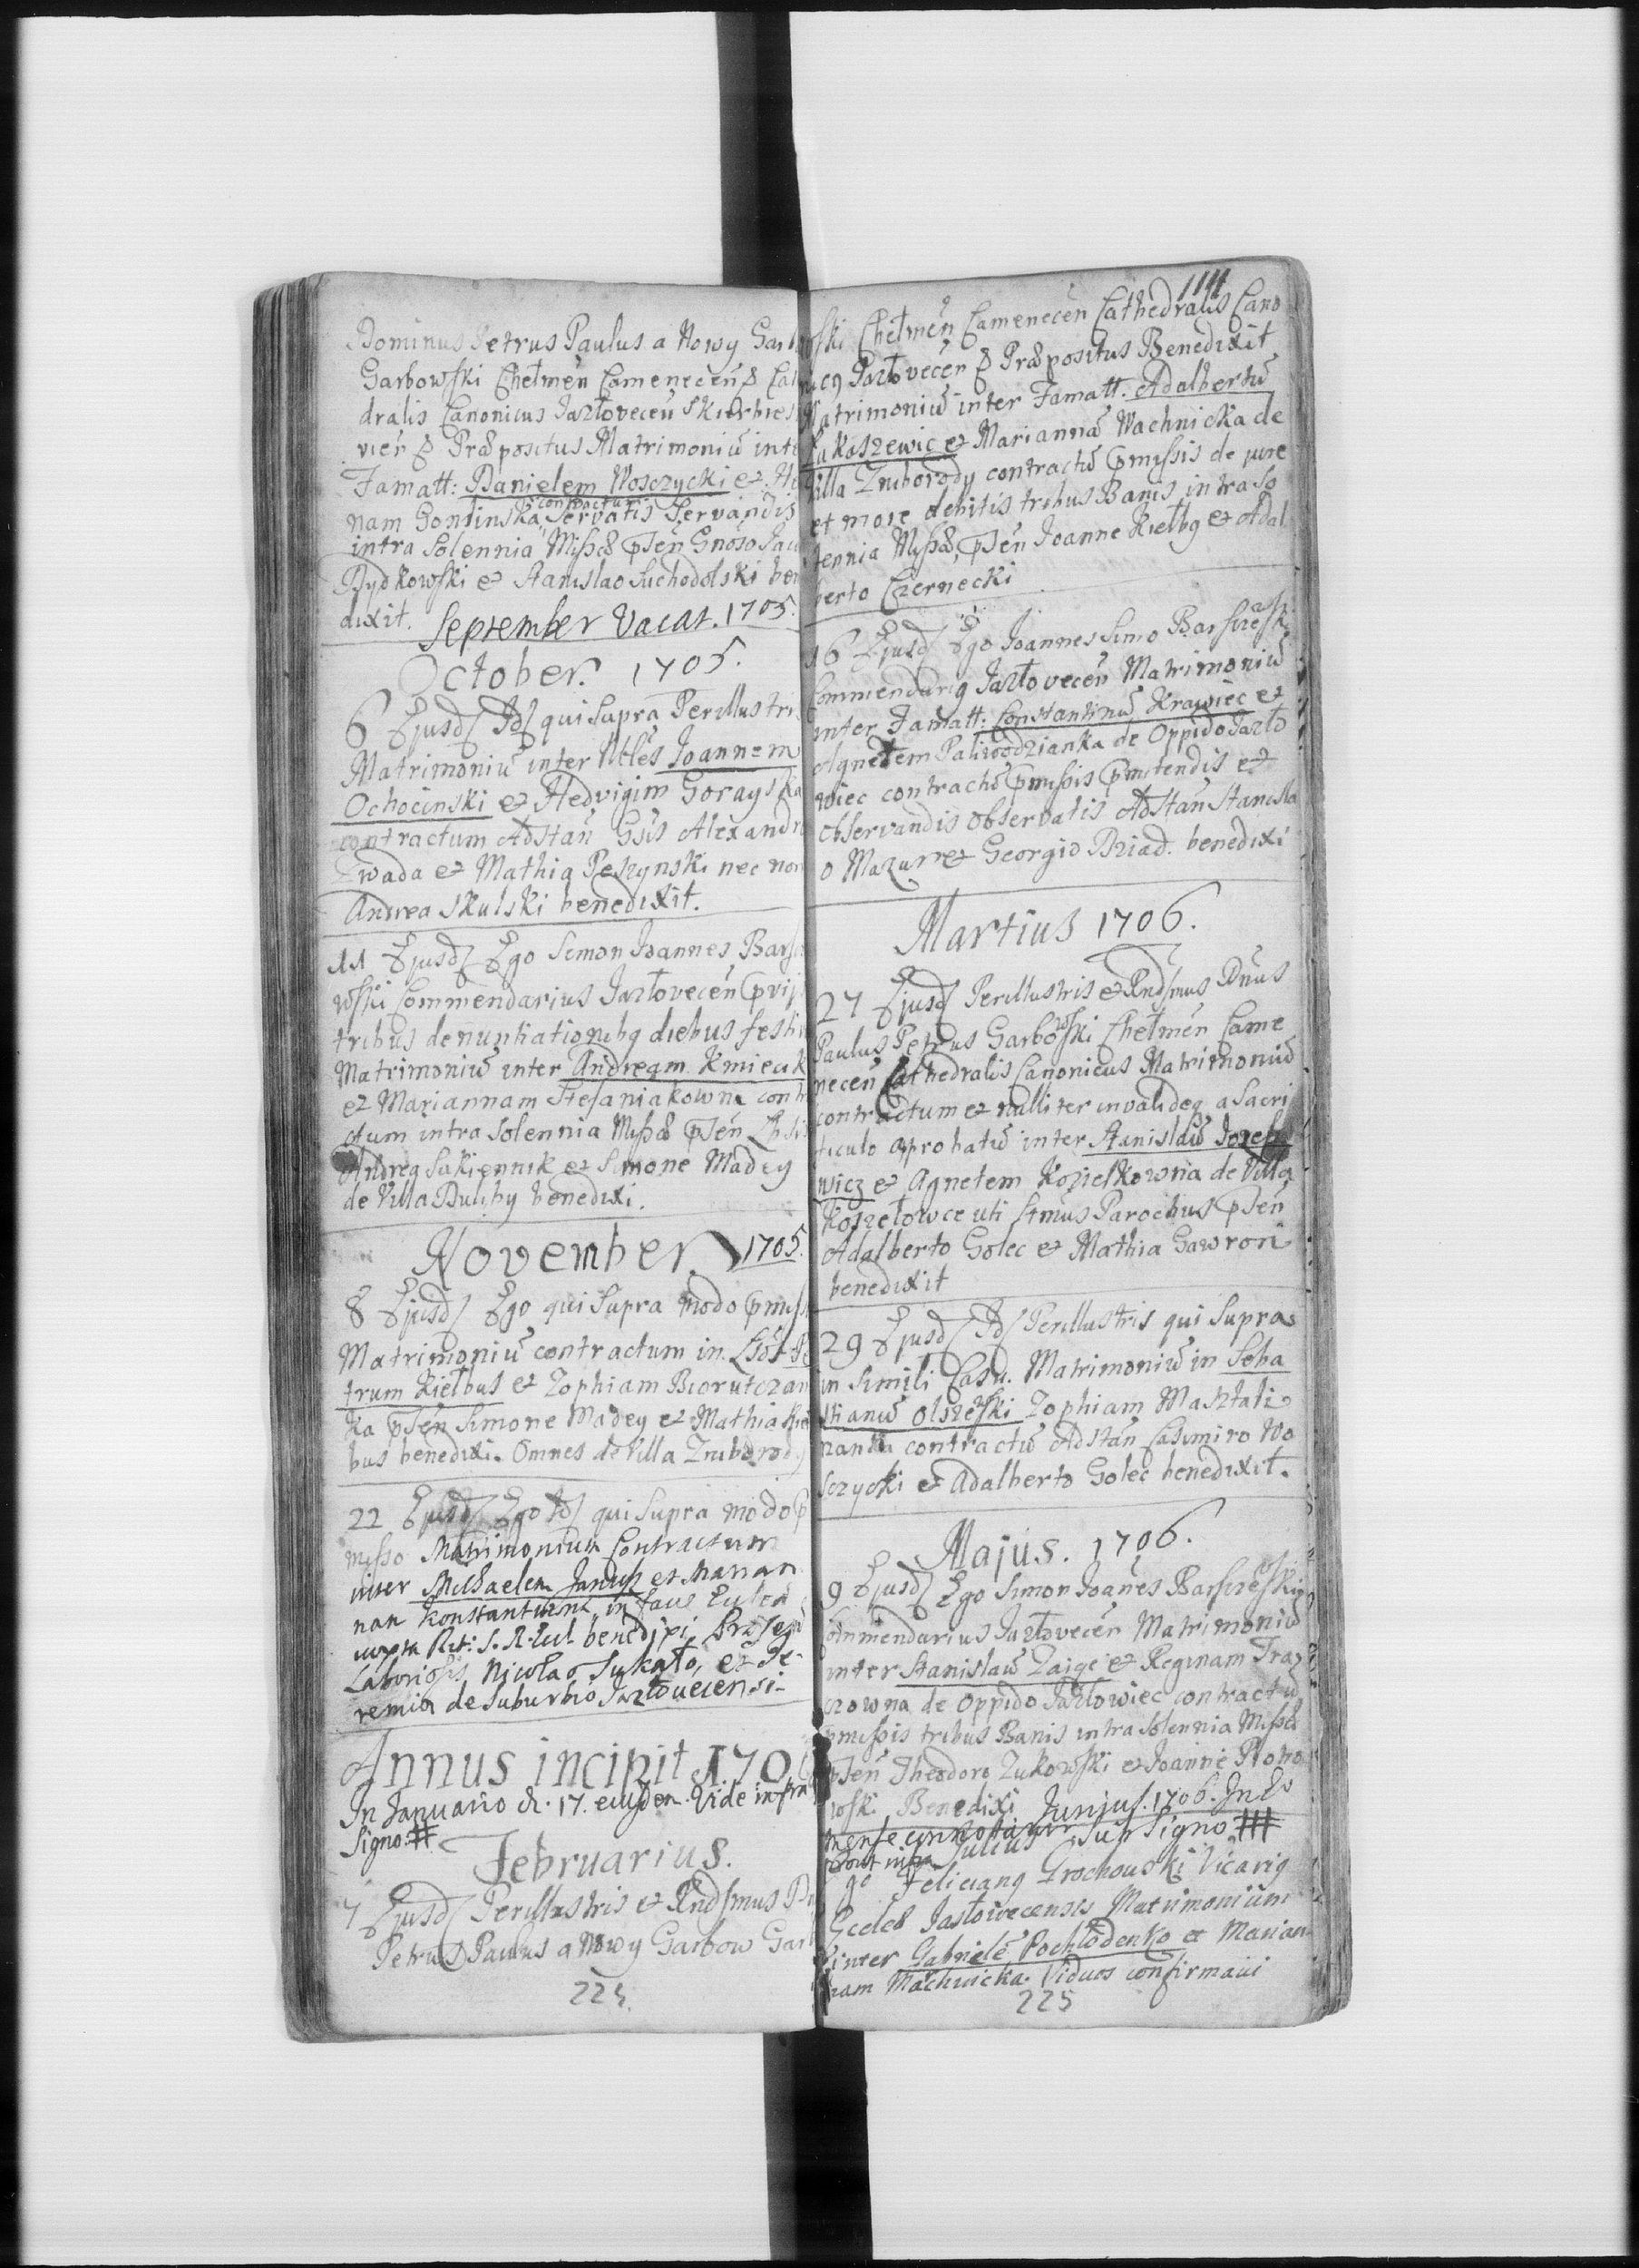 Dominus Petrus Paulus a Nowy Garb
Garbowski Chełmen̄ Camenecen̄ & Cat
dralis Canonicus Jazłovecen̄ Skierbies
vień & Præpositus Matrimoniū inte
Famatt: Danielem Wosczycki et He
contractum
nam Gondinska Servatis Servandis
intra Solennia Missæ p̄sen̄ Gnoso Jan
Bydkowski et Stanislao Suchodolski ben
dixit. September Vacat. 1705.
October. 1705.
6 Ejusd Id qui Supra Perillustris
Matrimoniū inter Nbles Joannem
Ochocinski et Hedvigim Gorayska
contractum Adstan̄ Gsis Alexandro
Zwada et Mathia Peszynski nec non
Andrea Skulski benedixit.
11 Ejusd Ego Simon Joannes Bars
wski Commendarius Jazłovecen̄ p̄vij
tribus denuntiationibq diebus festi
Matrimoniū inter Andream Kmiecik
et Mariannam Stefaniakowna contr
ctum intra Solennia Missæ p̄sen̄ Lbsi
Andrea Sukiennik et Simone Madey
de Villa Duliby benedixi.
November 1705.
8 Ejusd Ego qui Supra modo p̄miss
Matrimoniū contractum in. Lsos Pe
trum Kiełbus et Zophiam Biorutczan
ka p̄sen̄ Simone Madey et Mathia Kie
bus benedixi. Omnes de Villa Znibrody
22 Ejusd Ego Id qui Supra modo p̄
misso Matrimonium Contractum
inter Michaelem Janusz et Marian
nan Konstantinna in facie Eccles
iuxta Rit: S. R. Eccl. benedixi Præsen
Laboriosis, Nicolao Sukato, et Je-
remia de Suburbio Jazłouecensi-
Annus incipit 1706
In Januario d. 17. eiusdem. Vide infra
Signo: #
Februarius.
7 Ejusd Perillustris et Rndsmus D
Petrus Paulus a Nowy Garbow Garb
225
1111
wski Chełmen̄ Camenecen̄ Cathedralis Cano
nicq Jazłovecen̄ & Præpositus Benedixit
Matrimoniū inter Famatt. Adalbertū
Łukoszewic et Mariannā Wachnicka de
Villa Znibrody contractū p̄missis de jure
et more debitis tribus Banis intra So
lennia Missæ, p̄sen̄ Joanne Kiełbq et Adal
berto Czernecki
16 Ejusd Ego Joannes Simo Barszczewski
Commendariq Jazłovecen̄ Matrimoniū
inter Famatt: Constantinū Krawiec et
Agnetem Paliwodzianka de Oppido Jazło
wiec contractū p̄missis p̄mitendis et
observandis observatis Adstan̄ Stanisla
o Mazur et Georgio Dziad. benedixi
Martius 1706.
27 Ejusd Perillustris et Rndsmus Dnus
Paulus Petrus Garbowski Chełmen̄ Came
necen̄ Cathedralis Canonicus Matrimoniū
contractum et nulliter invalideq a Sacri
ficulo aprobatū inter Stanislaū Jozefo
wicz et Agnetem Koziełkowna de Villa
Koszełowce uti Stmus Parochus p̄sen̄
Adalberto Golec et Mathia Gawron
benedixit
29 Ejusd Id Perillustris qui Supra
in Simili Casu. Matrimoniū in Seba
stianū Olszewski Zophiam Masztali
zanka contractū Adstan̄ Casimiro Wo
sczycki et Adalberto Golec benedixit.
Majus. 1706.
9 Ejusd Ego Simon Joanes Barszczewski
Commendarius Jazłovecen̄ Matrimoniū
inter Stanislaū Zaige et Reginam Tra
czowna de Oppido Jazłowiec contractū
p̄missis tribus Banis intra Solennia Missæ
p̄sen̄ Theodoro Zukowski et Joanne Piotro
wski. Benedixi Junjus. 1706. In Eo
mense connotantur Sup Signo: ###
prout infra Julius
go Felicianq Grochouski Vicariq
Eccleæ Jazłowecensis Matrimonium
inter Gabrielē Pochłodenko et Marian
nam Machnicka. Viduos confirmaui
225